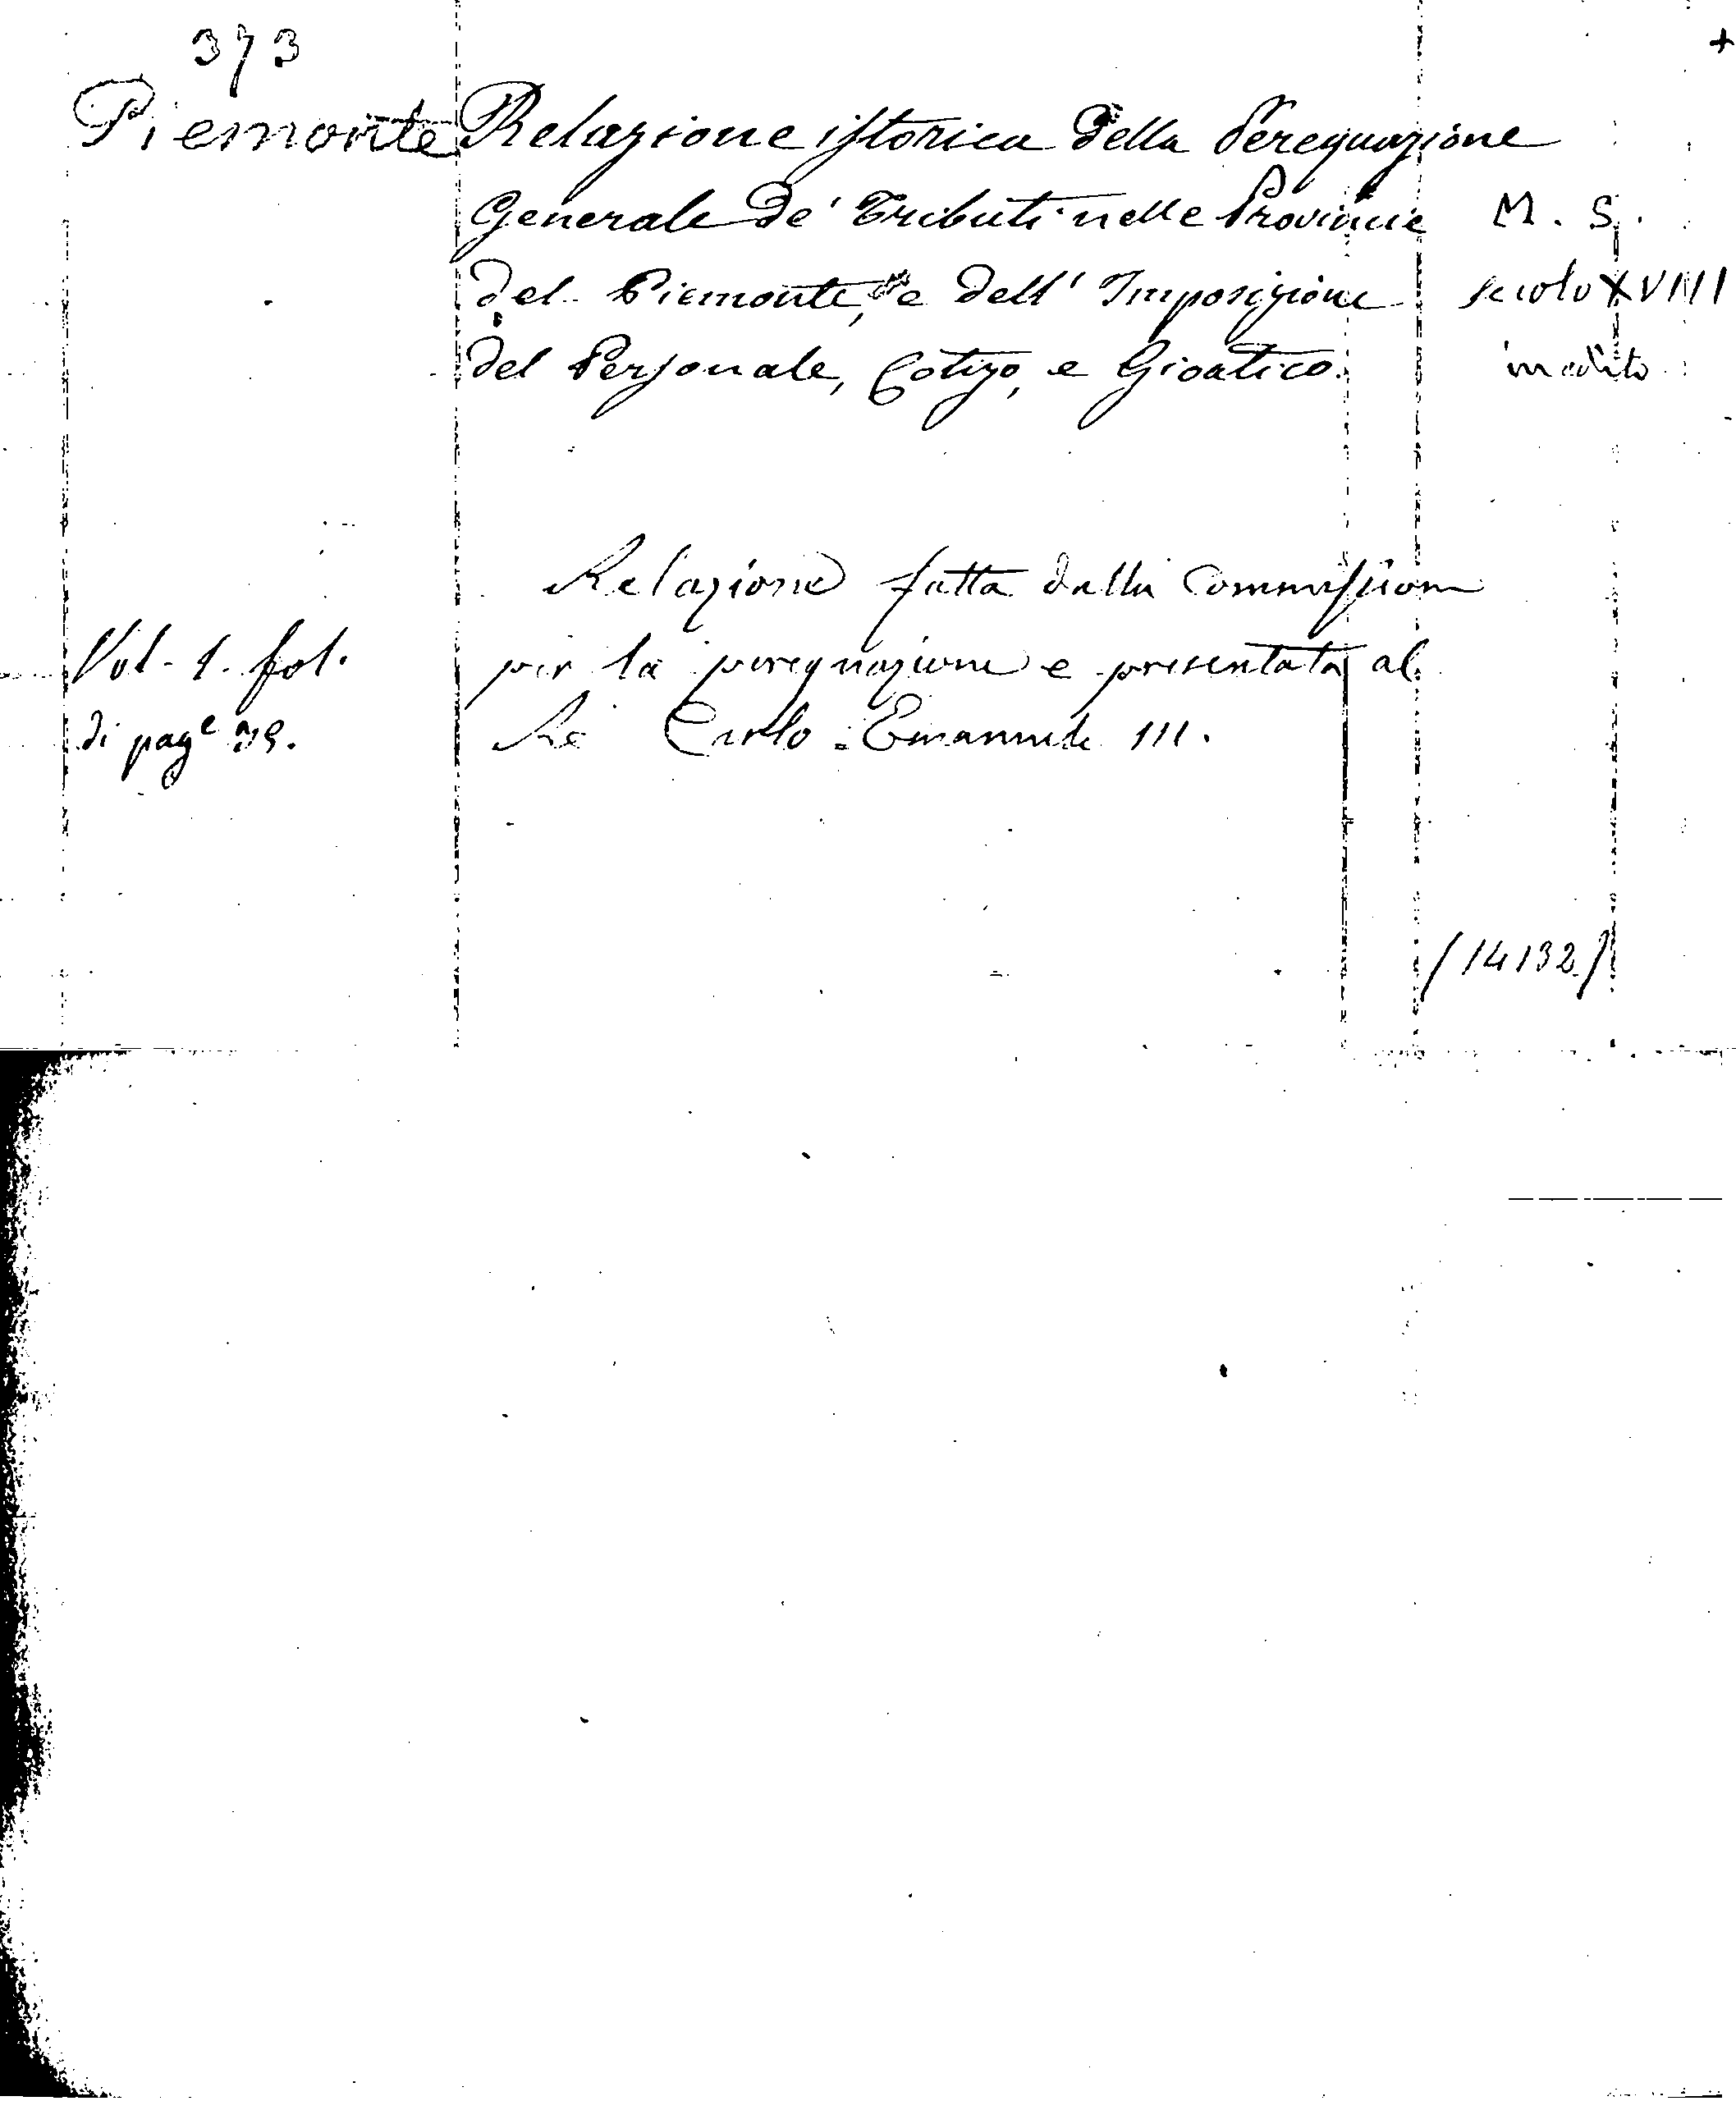 373
+
Piemonte Relazione istorica della Perequazione
Generale de' Tributi nelle Provincie M. S.
del Piemonte, e dell' Imposizione secolo XVIII
del Personale, Cotizo, e Gioatico. inedito
Relazione fatta dalla Commissione
Vol. 1. fol. per la perequazione e presentata al
di pag.e Re Carlo Emanuele III.
/14132/